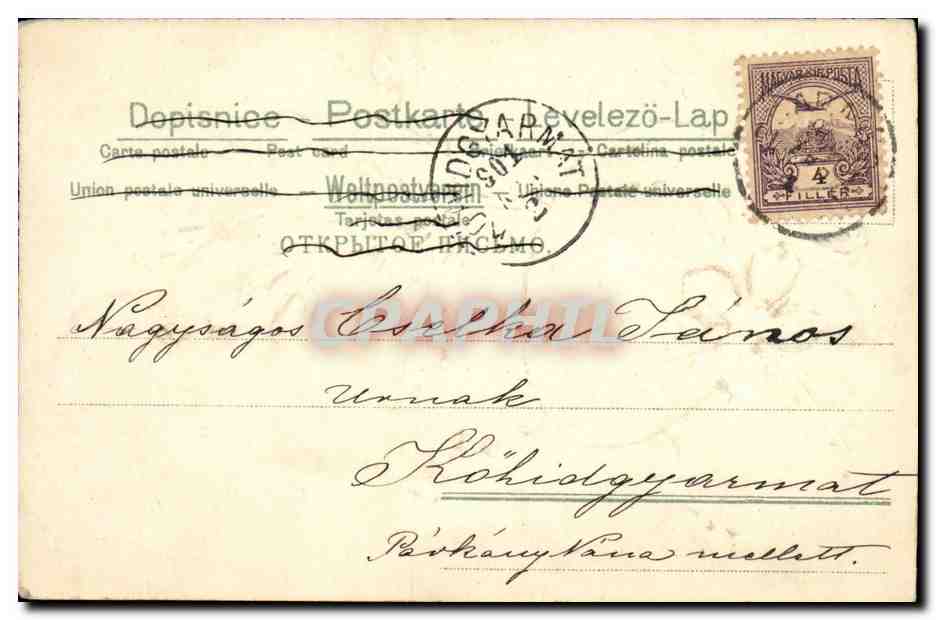 Dopisnice Postkarte Levelező-Lap
Carte postale — Post card Cartolina postale
Union postale universelle — Weltpostverein — Unione Postale universelle
Tarjetas postale
ОТКРЫТОЕ ПИСЬМО.
MAGYAR KIR. POSTA
4
FILLÉR
GYARMAT
CPAPHIL
Nagyságos Cselka János
Urnak
Kőhidgyarmat
Párkány Nána mellett.